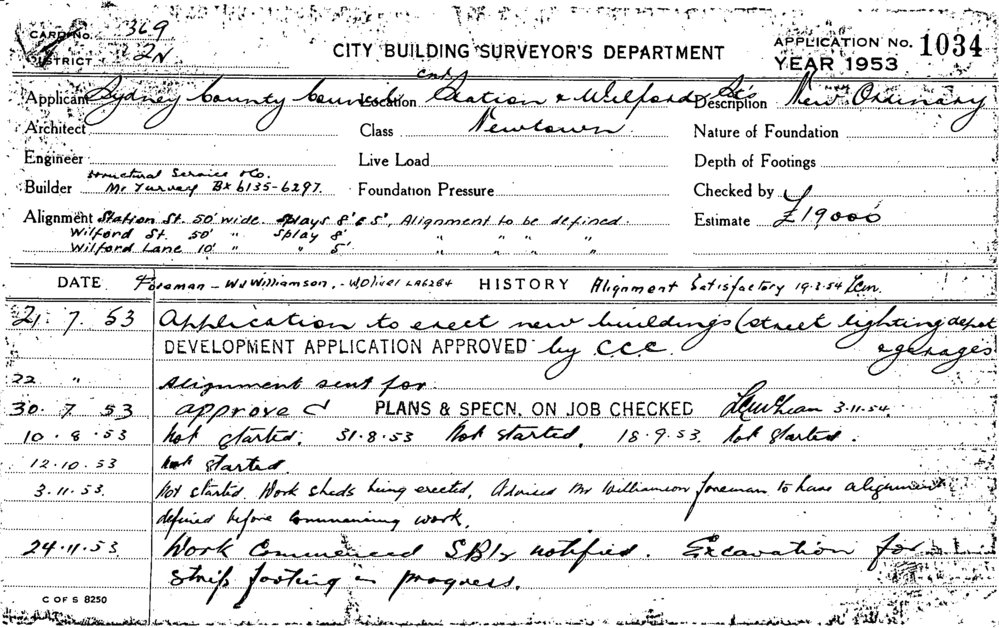 CARD No. 369
DISTRICT 2N
CITY BUILDING SURVEYOR'S DEPARTMENT
APPLICATION No. 1034
YEAR 1953
Applicant Sydney County Council Location Station & Wilford Sts Description New Ordinary
Architect Class Newtown Nature of Foundation
Engineer Live Load Depth of Footings
Structural Service & Co.
Builder Mr Turvey BX6135-6297 Foundation Pressure Checked by
Alignment Station St. 50' wide splays 8' & 5', Alignment to be defined. Estimate £19000
Wilford St. 50' " Splay 8' " " " "
Wilford Lane 10' " " 5' " " " "
DATE Foreman - WJ Williamson, - W Oliver LA6284 HISTORY Alignment Satisfactory 19-2-54
21. 7. 53 Application to erect new buildings (street lighting depot
DEVELOPMENT APPLICATION APPROVED by C.C.C. & garages
22 " Alignment sent for
30. 7. 53 approved PLANS & SPECN, ON JOB CHECKED 3.11.54.
10. 8. 53 Not started. 31.8.53 Not started. 18.9.53. Not started.
12.10.53 Not started.
3.11.53. Not started. Work sheds being erected. Advised Mr Williamson foreman to have alignment
defined before commencing work.
24.11.53 Work commenced notified. Excavation for
strip footing in progress.
C OF S 8250